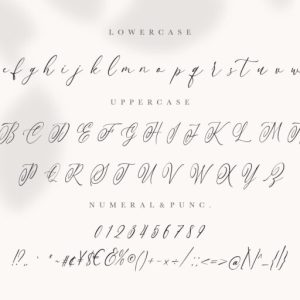 LOWERCASE
e f g h i j k l m n o p q r s t u v w
UPPERCASE
B C D E F G H I J K L M N
P Q R S T U V W X Y Z
NUMERAL&PUNC.
0123456789